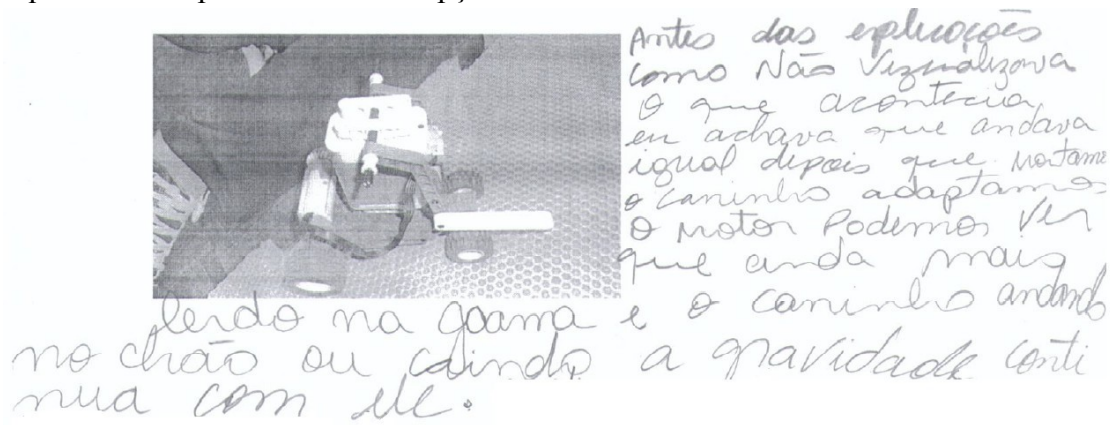 Antes das explicações
como Não Vizualizava
O que acontecia,
eu achava que andava
igual depois que montamo
o carrinho adaptamos
O motor Podemos Ver
que anda mais
lerdo na goama e o carrinho andando
no chão ou caindo a gravidade conti
nua com ele.